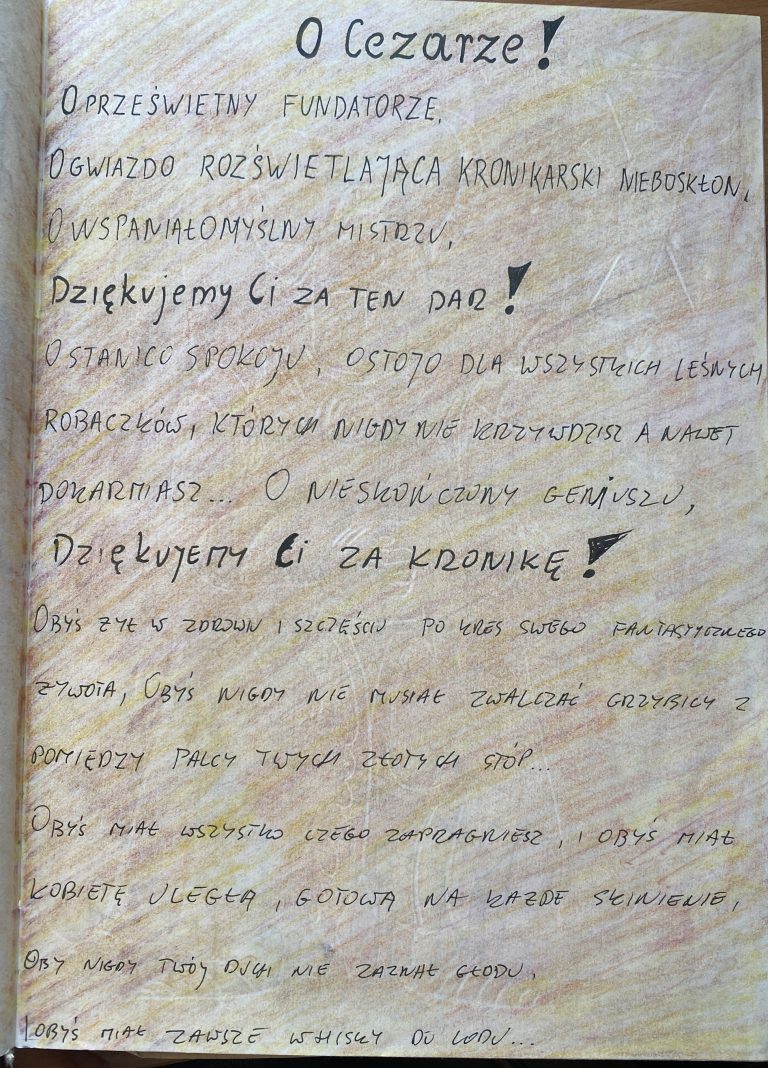 O Cezarze!
O PRZEŚWIETNY FUNDATORZE,
O GWIAZDO ROZŚWIETLAJĄCA KRONIKARSKI NIEBOSKŁON,
O WSPANIAŁOMYŚLNY MISTRZU,
Dziękujemy Ci ZA TEN DAR!
O STANICO SPOKOJU, OSTOJO DLA WSZYSTKICH LEŚNYCH
ROBACZKÓW, KTÓRYCH NIGDY NIE KRZYWDZISZ A NAWET
DOKARMIASZ... O NIESKOŃCZONY GENIUSZU,
DZIĘKUJEMY Ci ZA KRONIKĘ!
OBYŚ ŻYŁ W ZDROWIU I SZCZĘŚCIU PO KRES SWEGO FANTASTYCZNEGO
ŻYWOTA, OBYŚ NIGDY NIE MUSIAŁ ZWALCZAĆ GRZYBICY Z
POMIĘDZY PALCY TWYCH ZŁOTYCH STÓP...
OBYŚ MIAŁ WSZYSTKO CZEGO ZAPRAGNIESZ, I OBYŚ MIAŁ
KOBIETĘ ULEGŁĄ, GOTOWĄ NA KAŻDE SKINIENIE,
OBY NIGDY TWÓJ DUCH NIE ZAZNAŁ GŁODU,
I OBYŚ MIAŁ ZAWSZE WHISKY DO LODU...